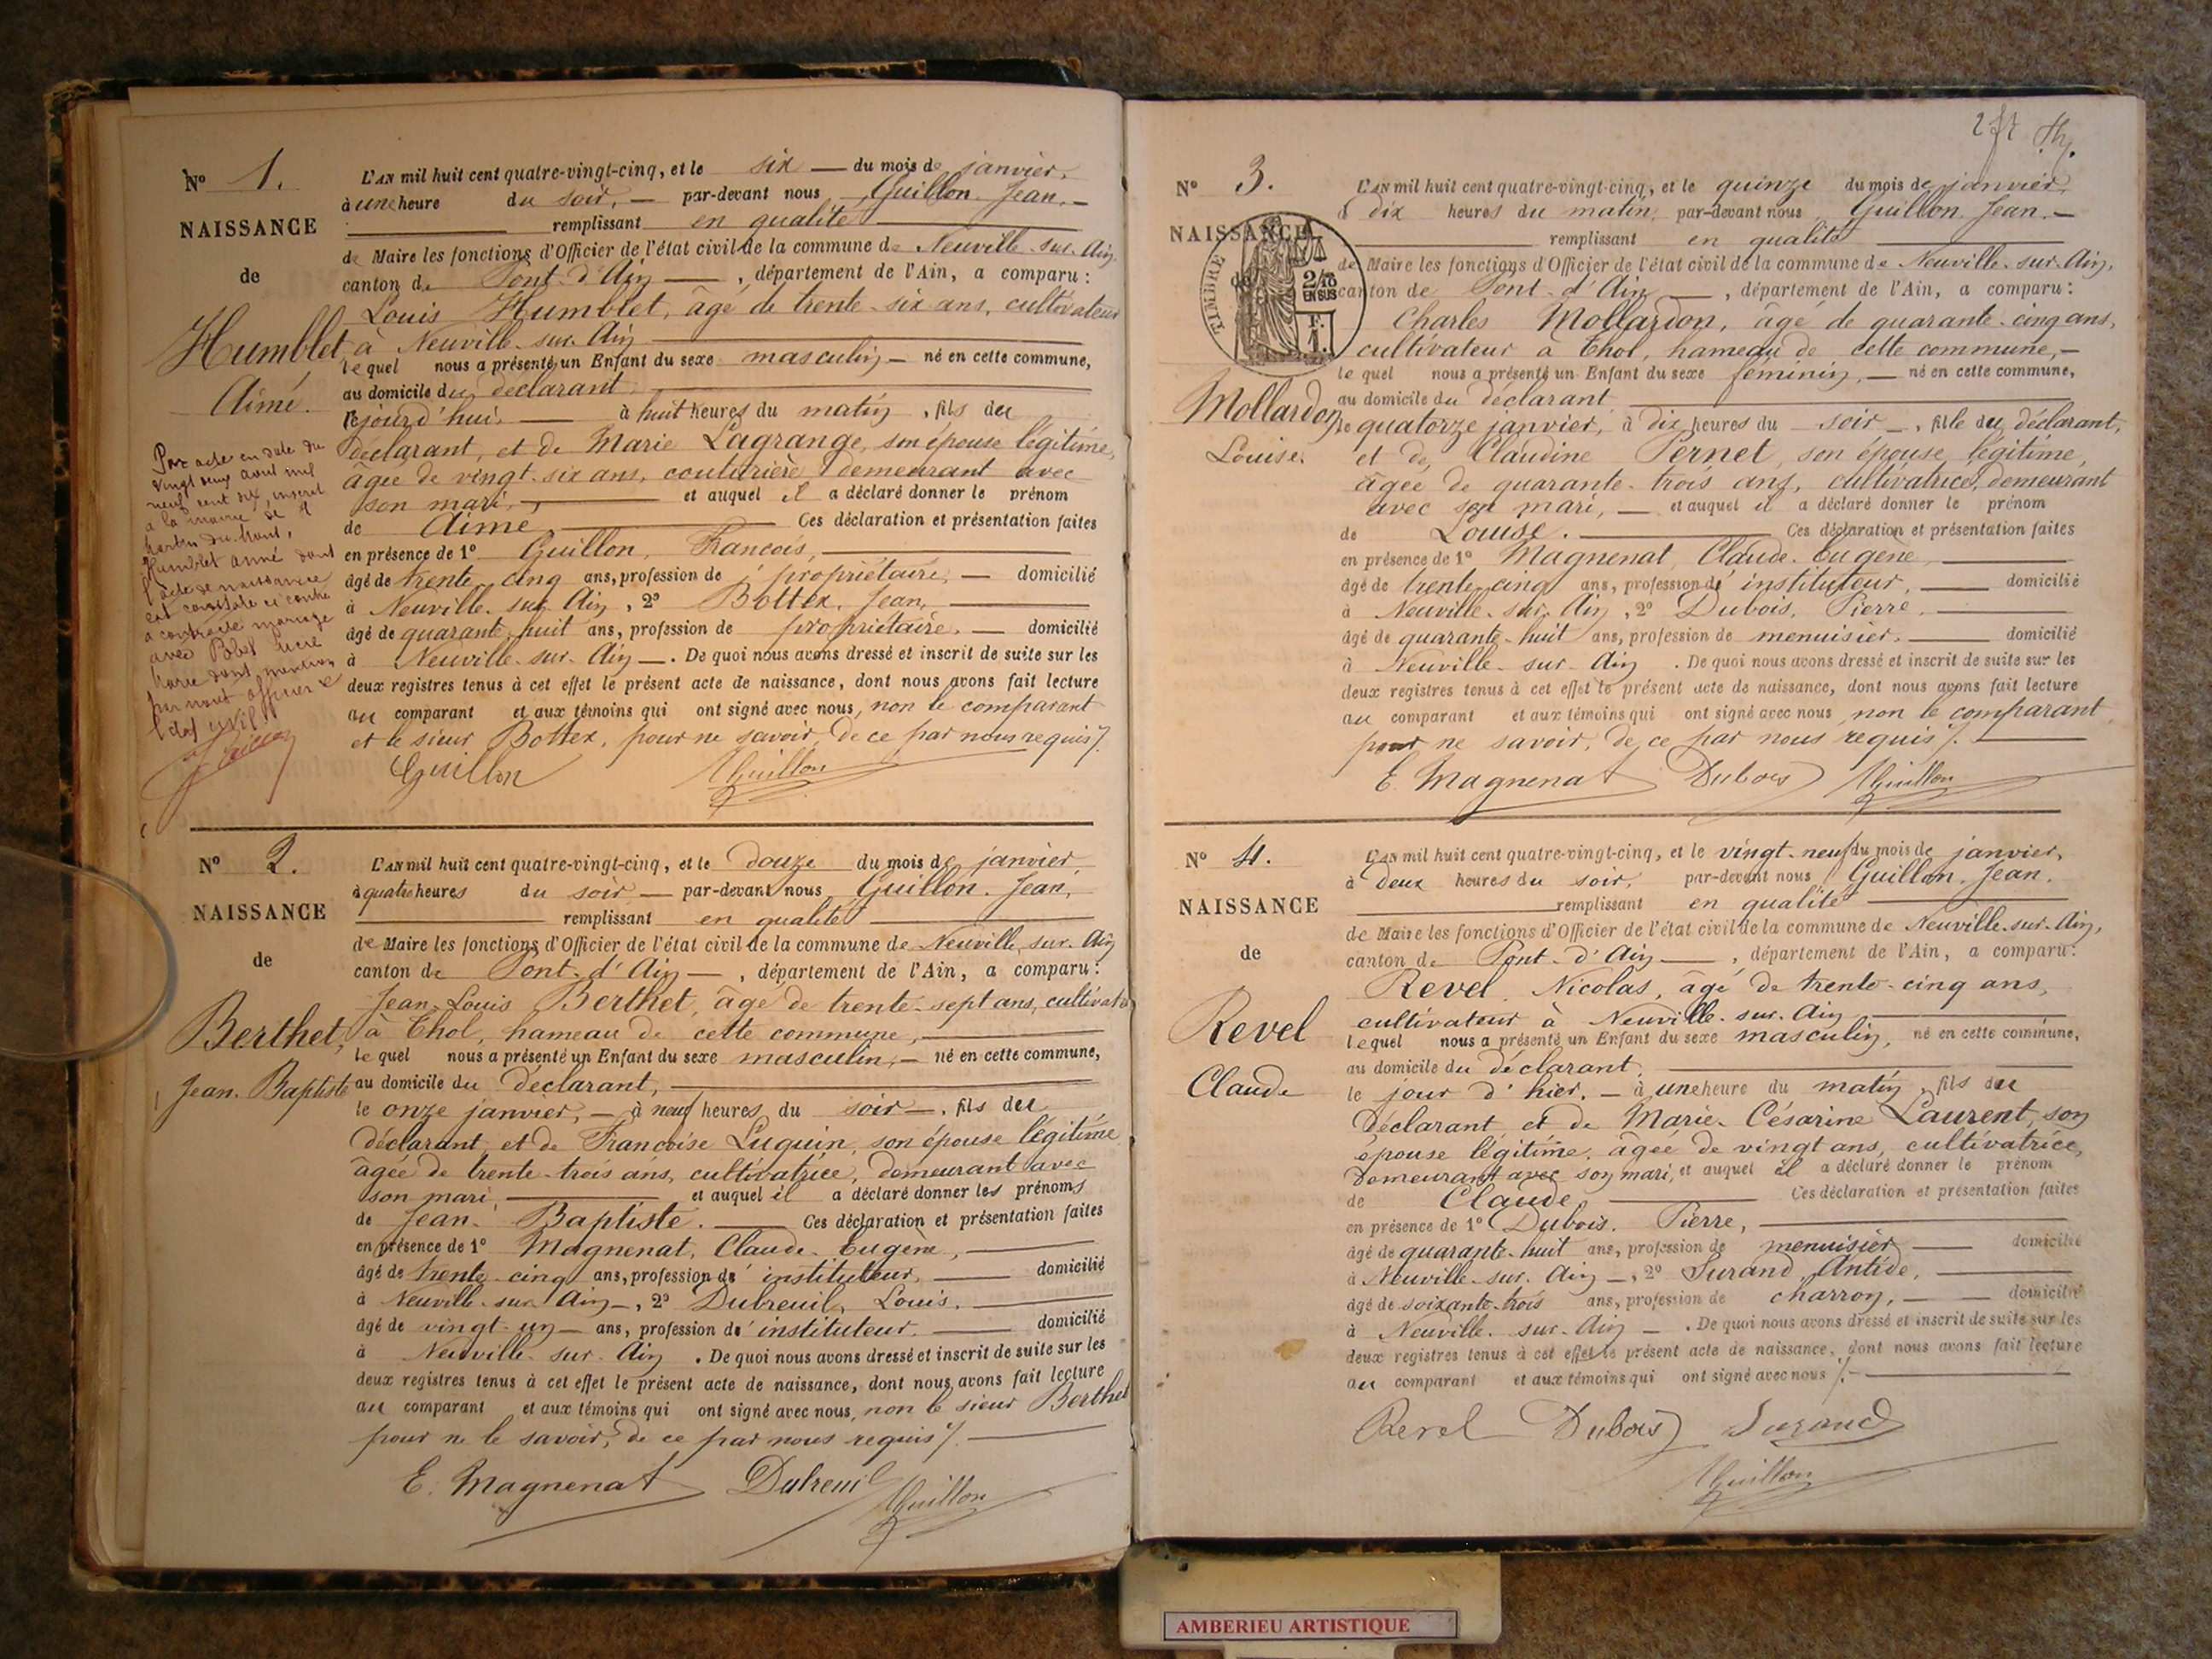 N° 1.
NAISSANCE
de
Humblet
Aimé.
Par acte en date du
vingt deux avril mil
neuf cent dix, inscrit
a la mairie de St
Martin du Mont,
Humblet Aimé dont
l'acte de naissance
est constaté ci contre
a contracté mariage
avec
Marie dont mention
par nous officier de
l'état civil
L'AN mil huit cent quatre-vingt-cinq, et le six — du mois de janvier,
à une heure du soir, — par-devant nous Guillon Jean, —
remplissant en qualité
de Maire les fonctions d'Officier de l'état civil de la commune de Neuville-sur-Ain
canton de Pont-d'Ain — , département de l'Ain, a comparu :
Louis Humblet, âgé de trente-six ans, cultivateur
à Neuville-sur-Ain
lequel nous a présenté un Enfant du sexe masculin — né en cette commune,
au domicile du déclarant,
cejourd'hui, — à huit heures du matin, fils du
déclarant, et de Marie Lagrange, son épouse légitime,
âgée de vingt-six ans, couturière demeurant avec
son mari, — et auquel il a déclaré donner le prénom
de Aimé, — Ces déclaration et présentation faites
en présence de 1° Guillon, François,
âgé de trente-cinq ans, profession de propriétaire, — domicilié
à Neuville-sur-Ain, 2° Bottex, Jean,
âgé de quarante-huit ans, profession de propriétaire. — domicilié
à Neuville-sur-Ain —. De quoi nous avons dressé et inscrit de suite sur les
deux registres tenus à cet effet le présent acte de naissance, dont nous avons fait lecture
au comparant et aux témoins qui ont signé avec nous, non le comparant
et le sieur Bottex, pour ne savoir, de ce par nous requis ./.
Guillon JGuillon
N° 2.
NAISSANCE
de
Berthet,
Jean-Baptiste
L'AN mil huit cent quatre-vingt-cinq, et le douze du mois de janvier
à quatre heures du soir — par-devant nous Guillon Jean,
remplissant en qualité
de Maire les fonctions d'Officier de l'état civil de la commune de Neuville-sur-Ain
canton de Pont-d'Ain — , département de l'Ain, a comparu :
Jean-Louis Berthet, âgé de trente-sept ans, cultivateur
à Thol, hameau de cette commune,
lequel nous a présenté un Enfant du sexe masculin, — né en cette commune,
au domicile du déclarant,
le onze janvier, — à neuf heures du soir —, fils du
déclarant, et de Françoise Luquin, son épouse légitime
âgée de trente-trois ans, cultivatrice, demeurant avec
son mari, — et auquel il a déclaré donner les prénoms
de Jean-Baptiste. — Ces déclaration et présentation faites
en présence de 1° Magnenat, Claude-Eugène,
âgé de trente-cinq ans, profession de instituteur, — domicilié
à Neuville-sur-Ain —, 2° Dubreuil, Louis,
âgé de vingt-un — ans, profession de instituteur, — domicilié
à Neuville-sur-Ain. De quoi nous avons dressé et inscrit de suite sur les
deux registres tenus à cet effet le présent acte de naissance, dont nous avons fait lecture
au comparant et aux témoins qui ont signé avec nous, non le sieur Berthet
pour ne le savoir, de ce par nous requis ./.
E. Magnenat Dubreuil JGuillon
N° 3.
NAISSANCE
de
TIMBRE
2/10
EN SUS
F.
1.
Mollardon
Louise.
L'AN mil huit cent quatre-vingt-cinq, et le quinze du mois de janvier,
à dix heures du matin, par-devant nous Guillon Jean. —
remplissant en qualité
de Maire les fonctions d'Officier de l'état civil de la commune de Neuville-sur-Ain,
canton de Pont-d'Ain — , département de l'Ain, a comparu :
Charles Mollardon, âgé de quarante-cinq ans,
cultivateur à Thol, hameau de cette commune, —
lequel nous a présenté un Enfant du sexe féminin, — né en cette commune,
au domicile du déclarant
le quatorze janvier, à dix heures du soir —, fille du déclarant,
et de Claudine Pernet, son épouse légitime,
âgée de quarante-trois ans, cultivatrice, demeurant
avec son mari, — et auquel il a déclaré donner le prénom
de Louise. — Ces déclaration et présentation faites
en présence de 1° Magnenat, Claude-Eugène
âgé de trente-cinq ans, profession de instituteur, — domicilié
à Neuville-sur-Ain, 2° Dubois, Pierre,
âgé de quarante-huit ans, profession de menuisier, — domicilié
à Neuville-sur-Ain. De quoi nous avons dressé et inscrit de suite sur les
deux registres tenus à cet effet le présent acte de naissance, dont nous avons fait lecture
au comparant et aux témoins qui ont signé avec nous, non le comparant
pour ne savoir, de ce par nous requis ./.
E. Magnenat Dubois JGuillon
N° 4.
NAISSANCE
de
Revel
Claude
L'AN mil huit cent quatre-vingt-cinq, et le vingt-neuf du mois de janvier,
à deux heures du soir, par-devant nous Guillon Jean.
remplissant en qualité
de Maire les fonctions d'Officier de l'état civil de la commune de Neuville-sur-Ain,
canton de Pont-d'Ain — , département de l'Ain, a comparu :
Revel, Nicolas, âgé de trente-cinq ans,
cultivateur à Neuville-sur-Ain
lequel nous a présenté un Enfant du sexe masculin, né en cette commune,
au domicile du déclarant,
le jour d'hier, — à une heure du matin, fils du
Déclarant et de Marie-Césarine Laurent, son
épouse légitime, âgée de vingt ans, cultivatrice,
demeurant avec son mari, et auquel il a déclaré donner le prénom
de Claude, — Ces déclaration et présentation faites
en présence de 1° Dubois, Pierre,
âgé de quarante-huit ans, profession de menuisier — domicilié
à Neuville-sur-Ain —, 2° Surand, Antide,
âgé de soixante-trois ans, profession de charron, — domicilié
à Neuville-sur-Ain —. De quoi nous avons dressé et inscrit de suite sur les
deux registres tenus à cet effet le présent acte de naissance, dont nous avons fait lecture
au comparant et aux témoins qui ont signé avec nous ./.
Revel Dubois Surand
JGuillon
AMBERIEU ARTISTIQUE